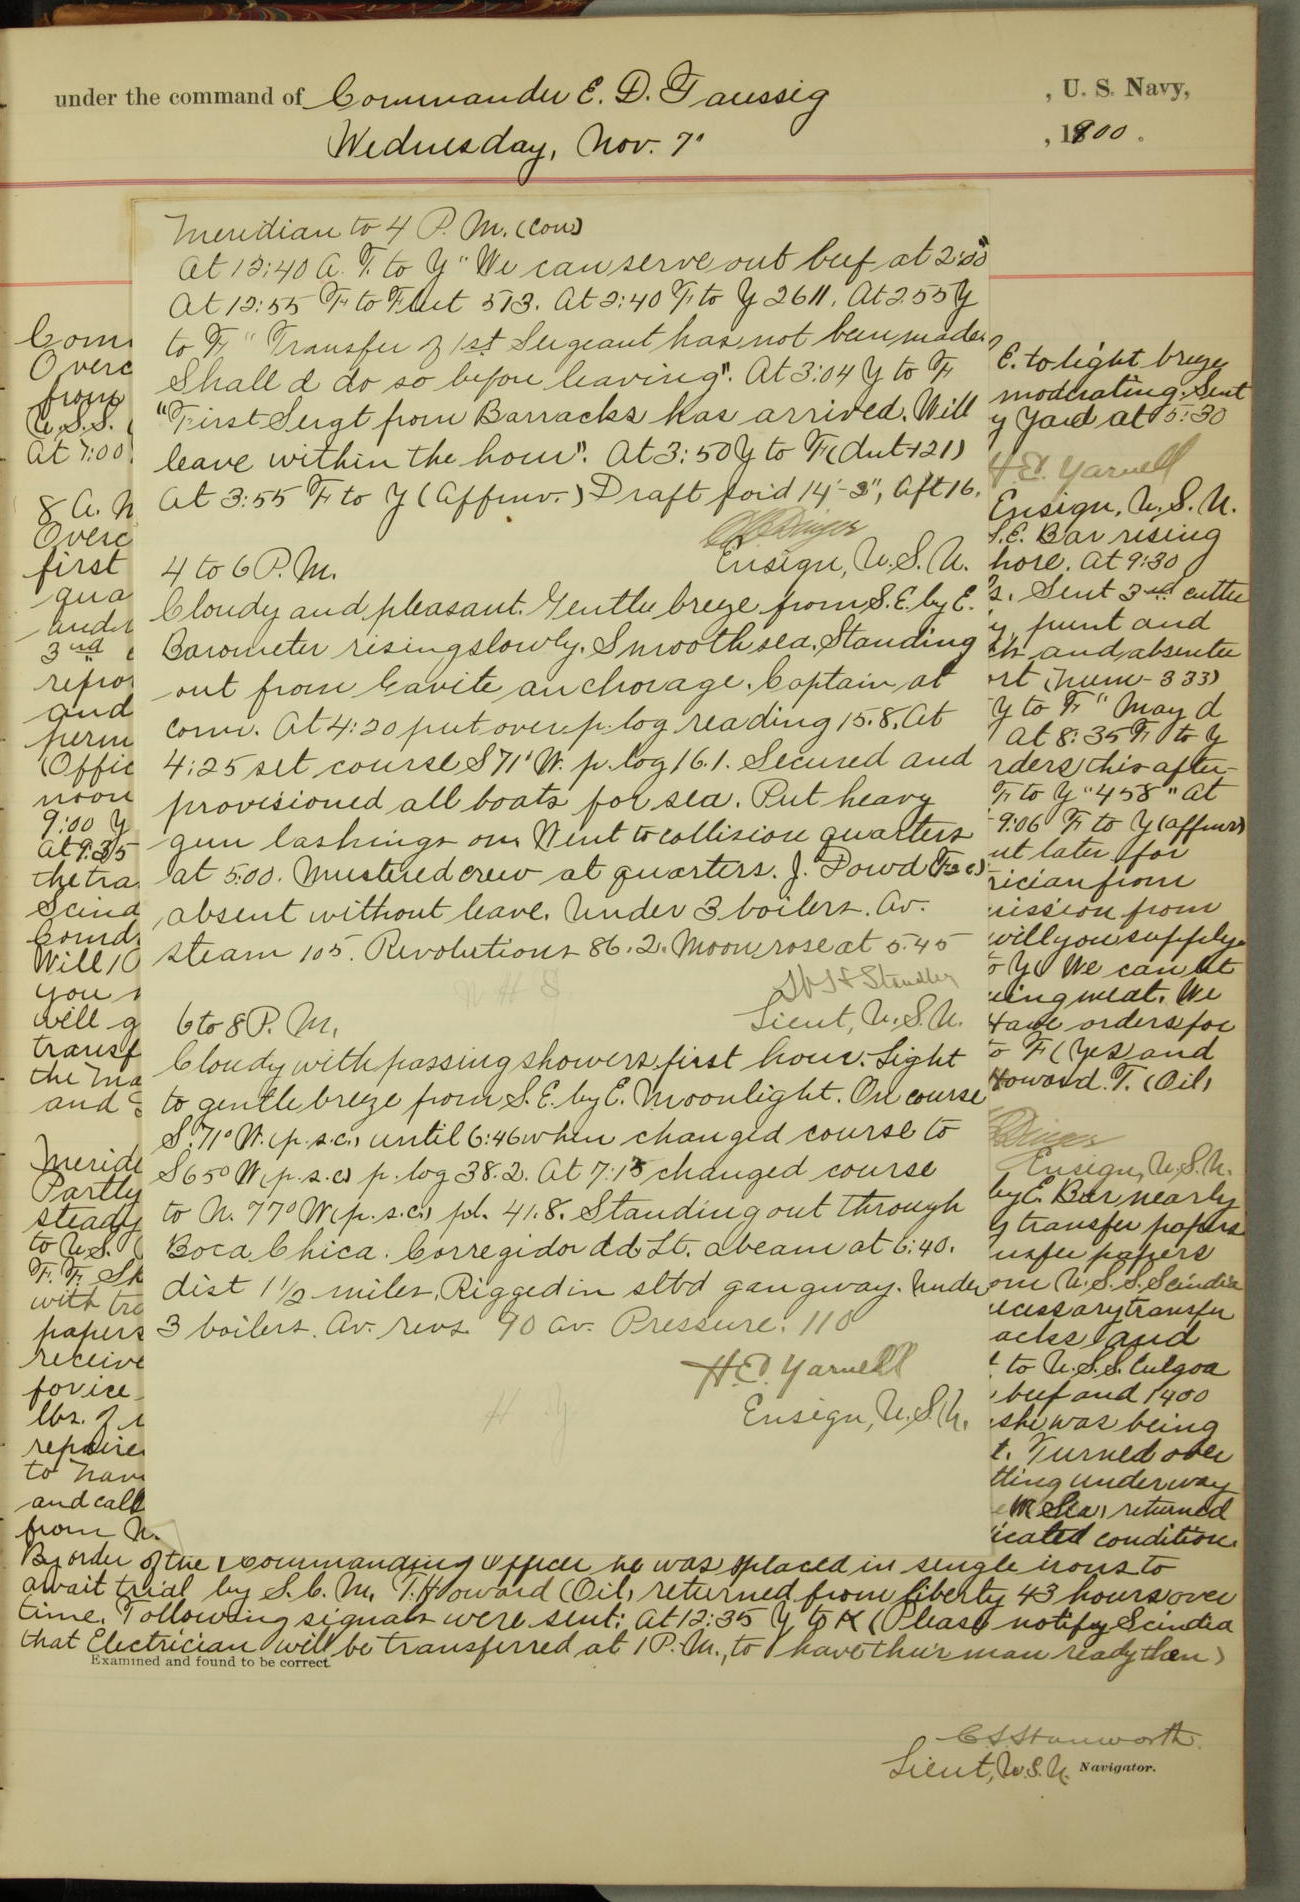 under the command of Commander E. D. Taussig , U. S. Navy,
Wednesday, Nov. 7" , 1900.
Meridian to 4 P. M. (con)
At 12:40 A. T. to Y "We can serve out beef at 2:00"
At 12:55 F to Fleet 513. At 2:40 F to Y 2611. At 2 55 Y
to F "Transfer of 1st Sergeant has not been made.
Shall d do so before leaving". At 3:04 Y to F
"First Sergt from Barracks has arrived. Will
leave within the hour". At 3:50 Y to F (dut-121)
At 3:55 F to Y (Affirmv.) Draft for'd 14'-3", Aft 16.
Ensign, U. S. N.
4 to 6 P. M.
Cloudy and pleasant. Gentle breeze from S. E. by E.
Barometer rising slowly. Smooth sea. Standing
out from Cavite anchorage. Captain at
conn. At 4:20 put over p. log reading 15.8. At
4:25 set course S 71° W. p. log 16.1. Secured and
provisioned all boats for sea. Put heavy
gun lashings on. Went to collision quarters
at 5:00. Mustered crew at quarters. J. Dowd (F 2 c)
absent without leave. Under 3 boilers. Av.
steam 105. Revolutions 86.2. Moon rose at 5:45
W H Standley
W H S
Lieut, U. S. N.
6 to 8 P. M.
Cloudy with passing showers first hour. Light
to gentle breeze from S. E. by E. Moonlight. On course
S. 71° W. (p. s. c.) until 6:46 when changed course to
S 65° W (p. s. c) p. log 38.2. At 7:15 changed course
to N. 77° W (p. s. c.) pl. 41.8. Standing out through
Boca Chica. Corregidor dd Lt. abeam at 6:40.
dist 1 1/2 miles. Rigged in stbd gangway. Under
3 boilers. Av. revs. 90 Av. Pressure. 110
H. E. Yarnell
H Y
Ensign, U. S. N.
Com
Overc
from
U. S. S.
At 7:00
8 A. M
Overc
first
qua
under
3rd
repo
and
perm
(Offic
noon
9:00 Y
At 9:35
the tra
Scind
Comd
Will 10
you
will g
transf
the Ma
and
Meride
Partly
steady
to U. S.
F. F. Sk
with tra
papers
receive
for ice
lbs. of
repaire
to Nav
and call
from N.
E. to light breeze
moderating. Sent
y Yard at 5:30
H. E. Yarnell
Ensign, U. S. N.
S. E. Bar rising
hore. At 9:30
s. Sent 3rd cutter
punt and
ch and absentee
ort (Num- 333)
Y to F "May d
At 8:35 F to Y
rders this after-
F to Y "458" At
9:06 F to Y (affirmv)
ut later for
rician from
mission from
will you supply
o Y (We can let
ing meat. We
Have orders for
to F (Yes) and
Howard. T. (Oil)
Ensign, U. S. N.
by E. Bar nearly
g transfer papers
nsfer papers
om U. S. S. Scindia
ecessary transfer
acks and
to U. S. S. Culgoa
beef and 1400
she was being
t. Turned over
tting underway
M (Sea) returned
icated condition.
By order of the Commanding Officer he was placed in single irons to
await trial by S. C. M. T. Howard (Oil) returned from liberty 43 hours over
time. Following signals were sent: At 12:35 Y to K (Please notify Scindia
that Electrician will be transferred at 1 P. M., to have their man ready then)
Examined and found to be correct.
C. S. Stanworth.
Lieut, U. S. N. Navigator.